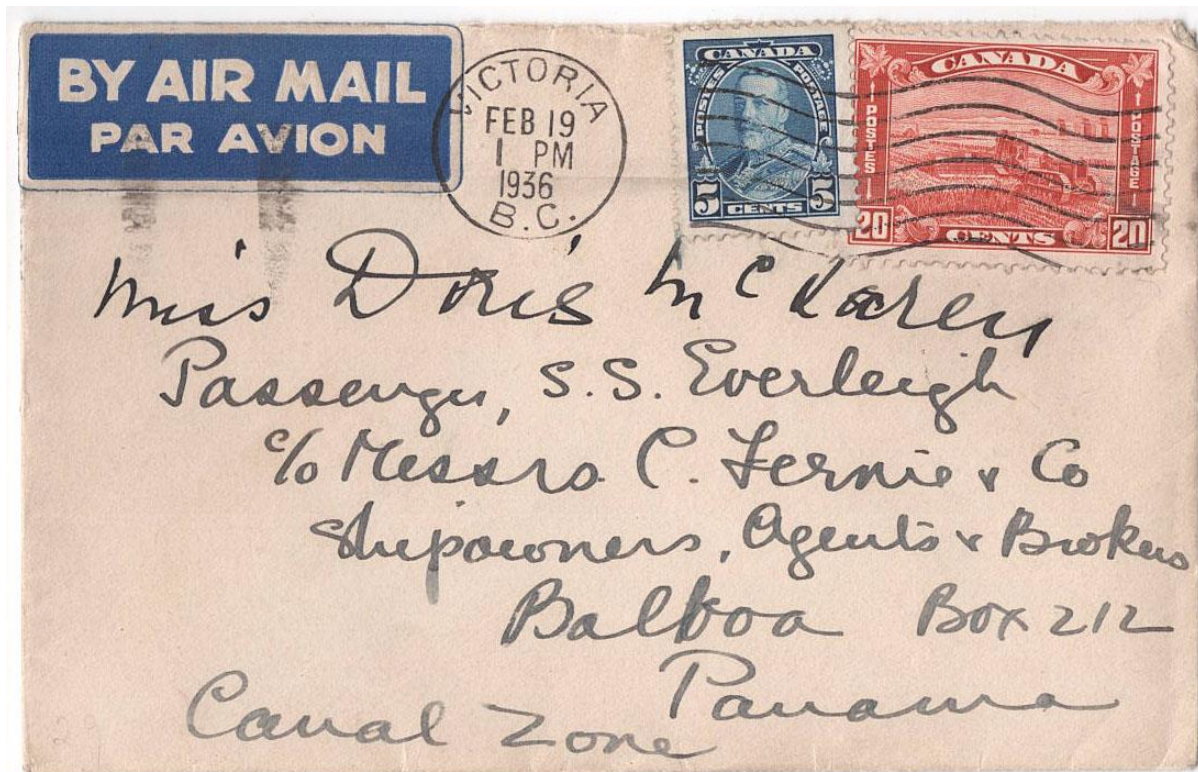 BY AIR MAIL
PAR AVION
VICTORIA
FEB 19
1 PM
1936
B.C.
CANADA
POSTES POSTAGE
5 CENTS 5
CANADA
POSTES POSTAGE
20 CENTS 20
Miss Doris McLaren
Passenger, S.S. Everleigh
c/o Messrs. C. Fernie & Co
Shipowners, Agents & Brokers
Balboa Box 212
Panama
Canal Zone